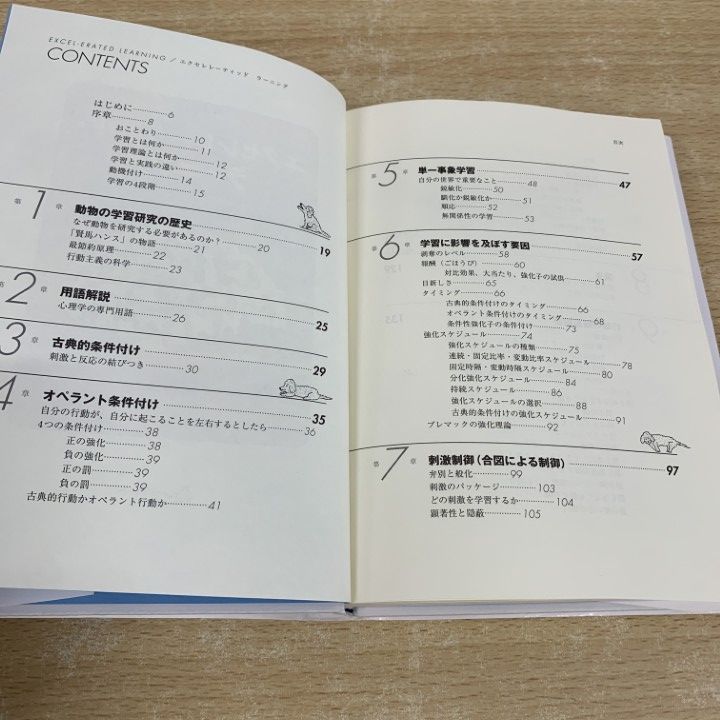 EXCEL-ERATED LEARNING／エクセレレーティッド ラーニング
CONTENTS
はじめに……………6
序章……………8
おことわり……………10
学習とは何か……………11
学習理論とは何か……………12
学習と実践の違い……………12
動機付け……………14
学習の4段階……………15
第1章 動物の学習研究の歴史……………19
なぜ動物を研究する必要があるのか？……………20
「賢馬ハンス」の物語……………21
最節約原理……………22
行動主義の科学……………23
第2章 用語解説……………25
心理学の専門用語……………26
3章 古典的条件付け……………29
刺激と反応の結びつき……………30
4章 オペラント条件付け……………35
自分の行動が、自分に起こることを左右するとしたら……………36
4つの条件付け……………38
正の強化……………38
負の強化……………39
正の罰……………39
負の罰……………39
古典的行動かオペラント行動か……………41
目次
第5章 単一事象学習……………47
自分の世界で重要なこと……………48
鋭敏化……………50
馴化か鋭敏化か……………51
順応……………52
無関係性の学習……………53
第6章 学習に影響を及ぼす要因……………57
剥奪のレベル……………58
報酬（ごほうび）……………60
対比効果、大当たり、強化子の試供……………61
目新しさ……………65
タイミング……………66
古典的条件付けのタイミング……………66
オペラント条件付けのタイミング……………68
条件性強化子の条件付け……………73
強化スケジュール……………74
強化スケジュールの種類……………75
連続・固定比率・変動比率スケジュール……………78
固定時隔・変動時隔スケジュール……………80
分化強化スケジュール……………84
持続スケジュール……………86
強化スケジュールの選択……………88
古典的条件付けの強化スケジュール……………91
プレマックの強化理論……………92
第7章 刺激制御（合図による制御）……………97
弁別と般化……………99
刺激のパッケージ……………103
どの刺激を学習するか……………104
顕著性と隠蔽……………105